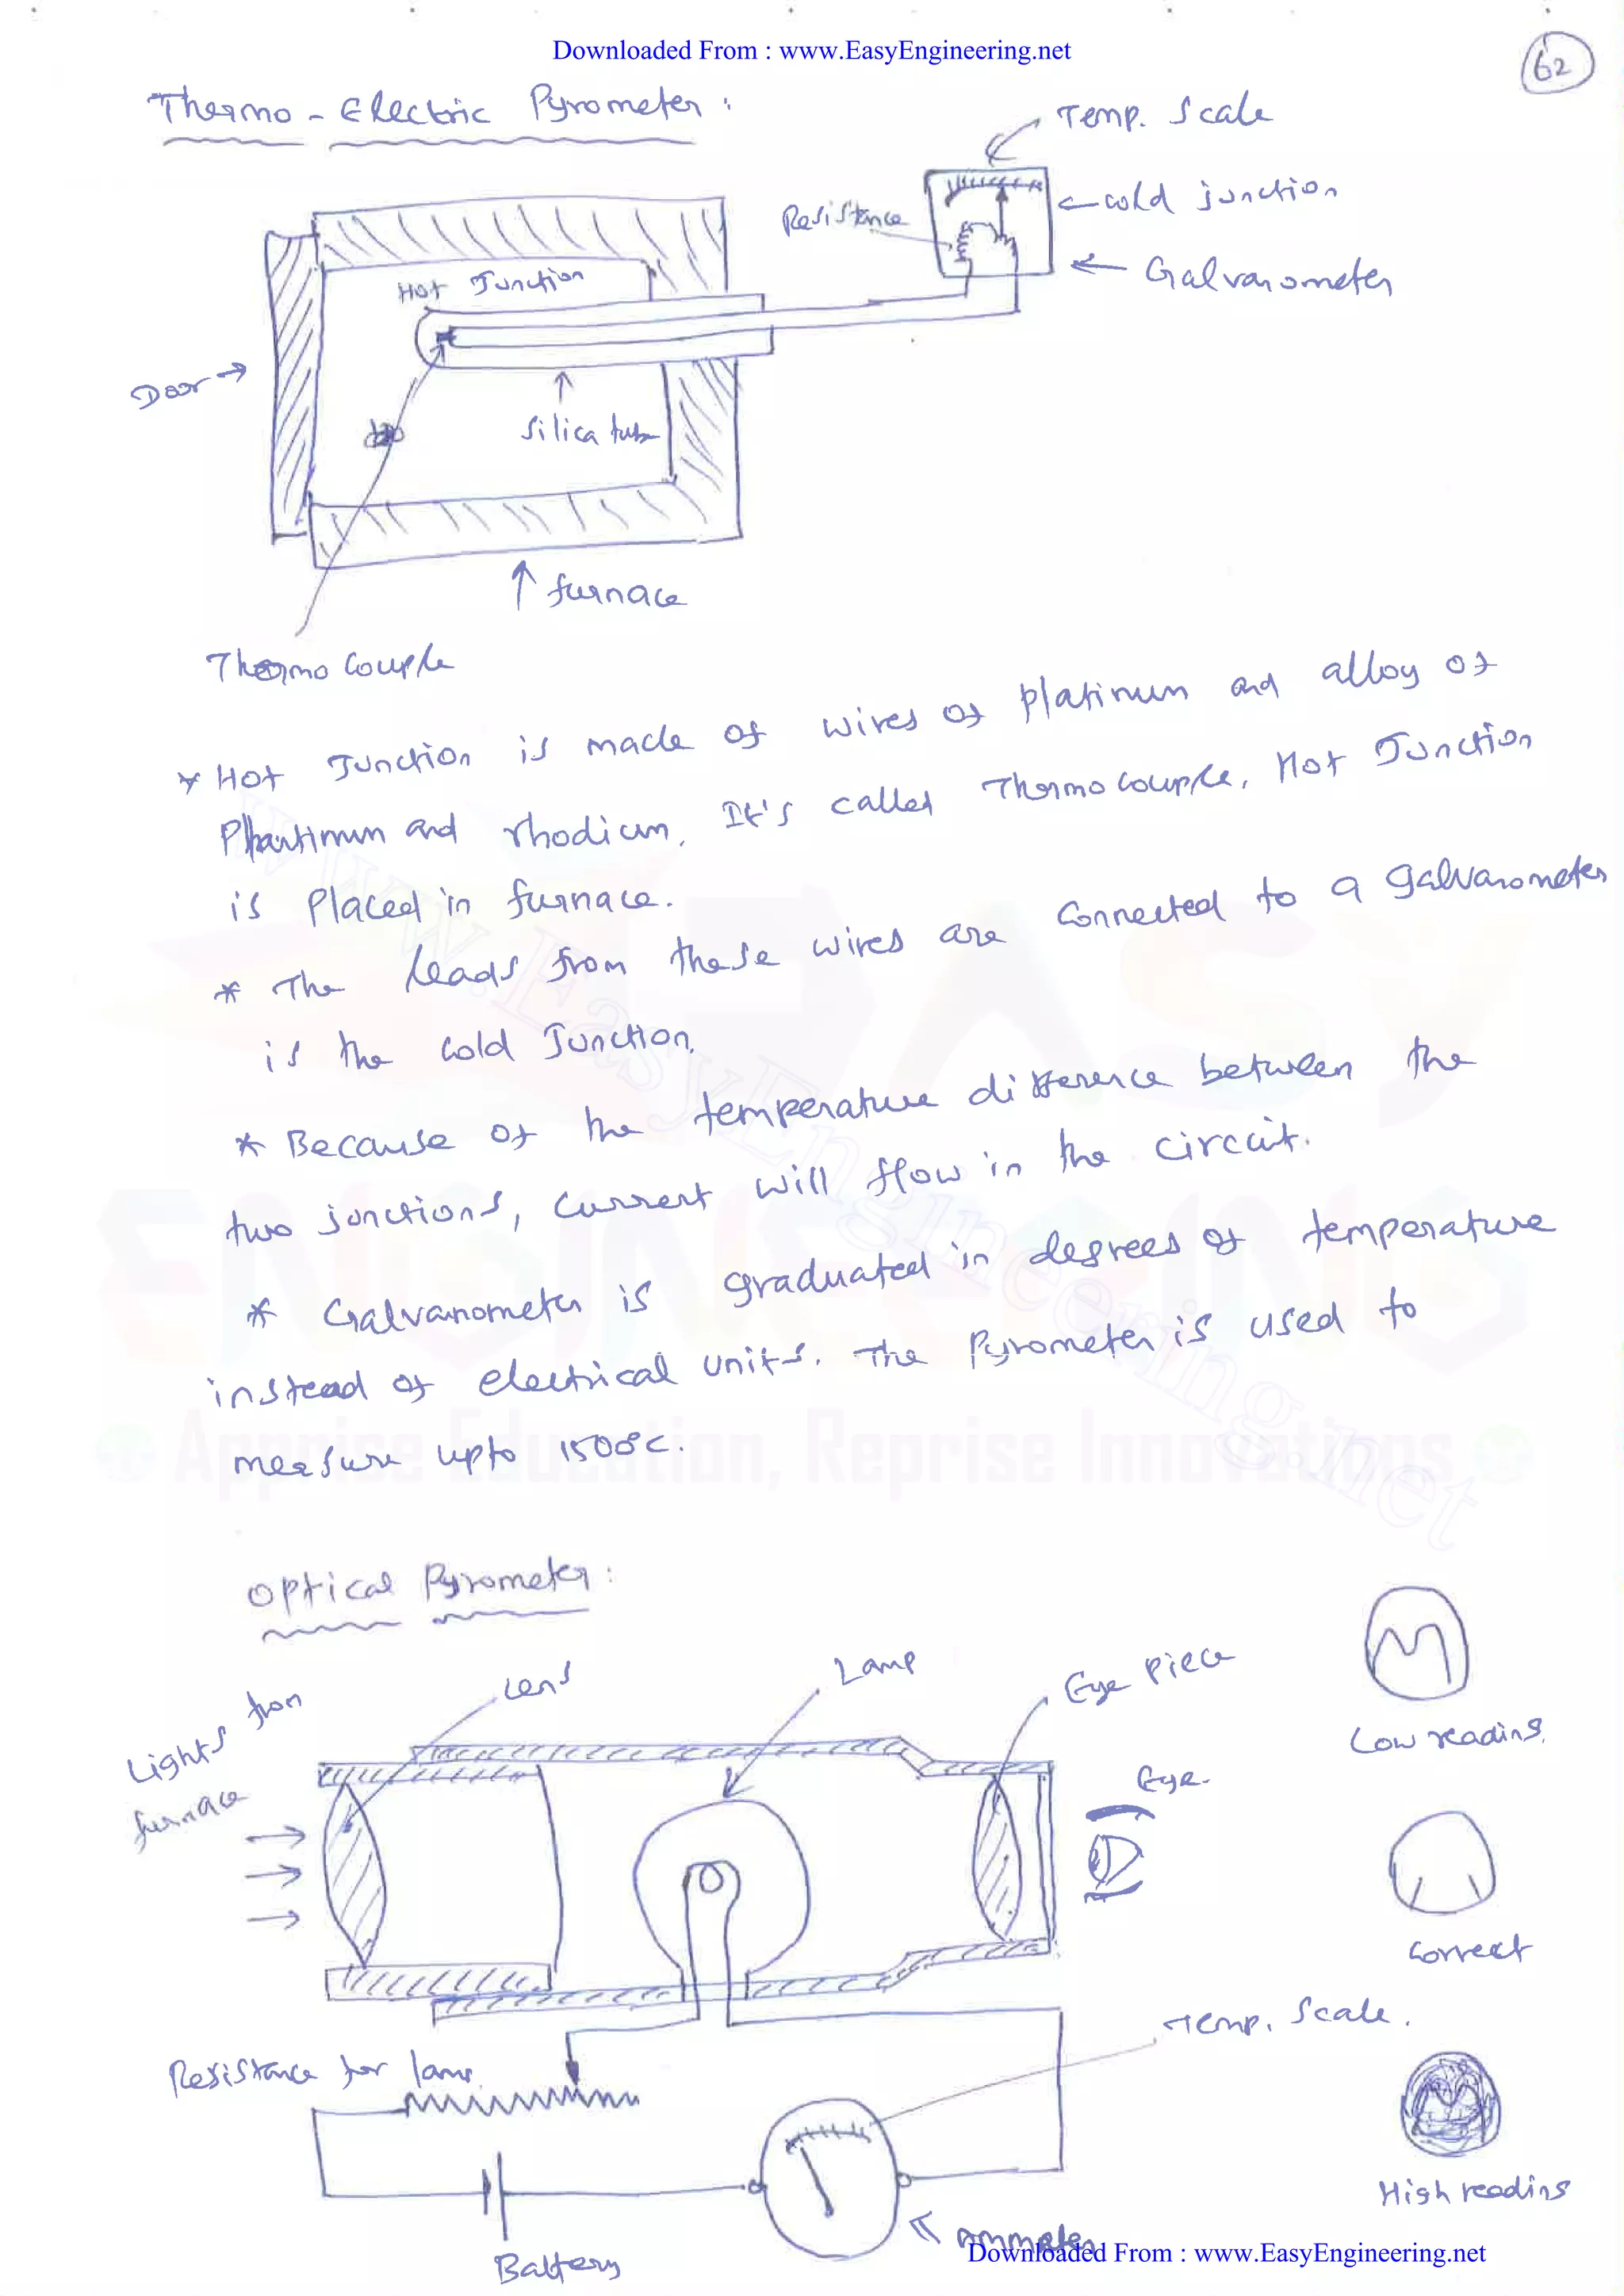 Downloaded From : www.EasyEngineering.net
62
Thermo - Electric Pyrometer :
Temp. Scale
cold junction
Resistance
Galvanometer
Hot Junction
Door
Silica tube
furnace
Thermo Couple
* Hot Junction is made of wires of Platinum and alloy of
Plantinum and rhodium. It's called Thermo couple, Hot Junction
is Placed in furnace.
* The leads from these wires are Connected to a galvanometer
is the Cold Junction.
* Because of the temperature difference between the
two junctions, Current will flow in the circuit.
* Galvanometer is graduated in degrees of temperature
instead of electrical units. The Pyrometer is used to
measure upto 1500°C.
www.EasyEngineering.net
EASY
ENGINEERING
Apprise Education, Reprise Innovations
Optical Pyrometer :
Lights from
furnace
Lens
Lamp
Eye Piece
Low reading.
Eye.
Correct
Temp. Scale.
Resistance for lamp.
High reading
Battery
Ammeter
Downloaded From : www.EasyEngineering.net